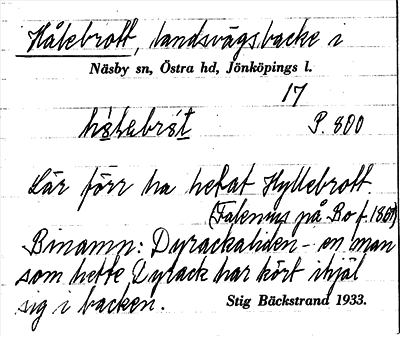 Hålebrott, landsvägsbacke i
Näsby sn, Östra hd, Jönköpings l.
17
P. 800
Lär förr ha hetat Hyllebrott.
(Falenius på Bo f. 1861)
Binamn: Dyrackaliden - en man
som hette Dyrack har kört ihjäl
sig i backen.
Stig Bäckstrand 1933.